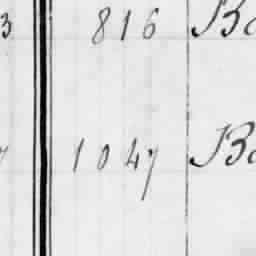 3 816 Ba
7 1047 Ba